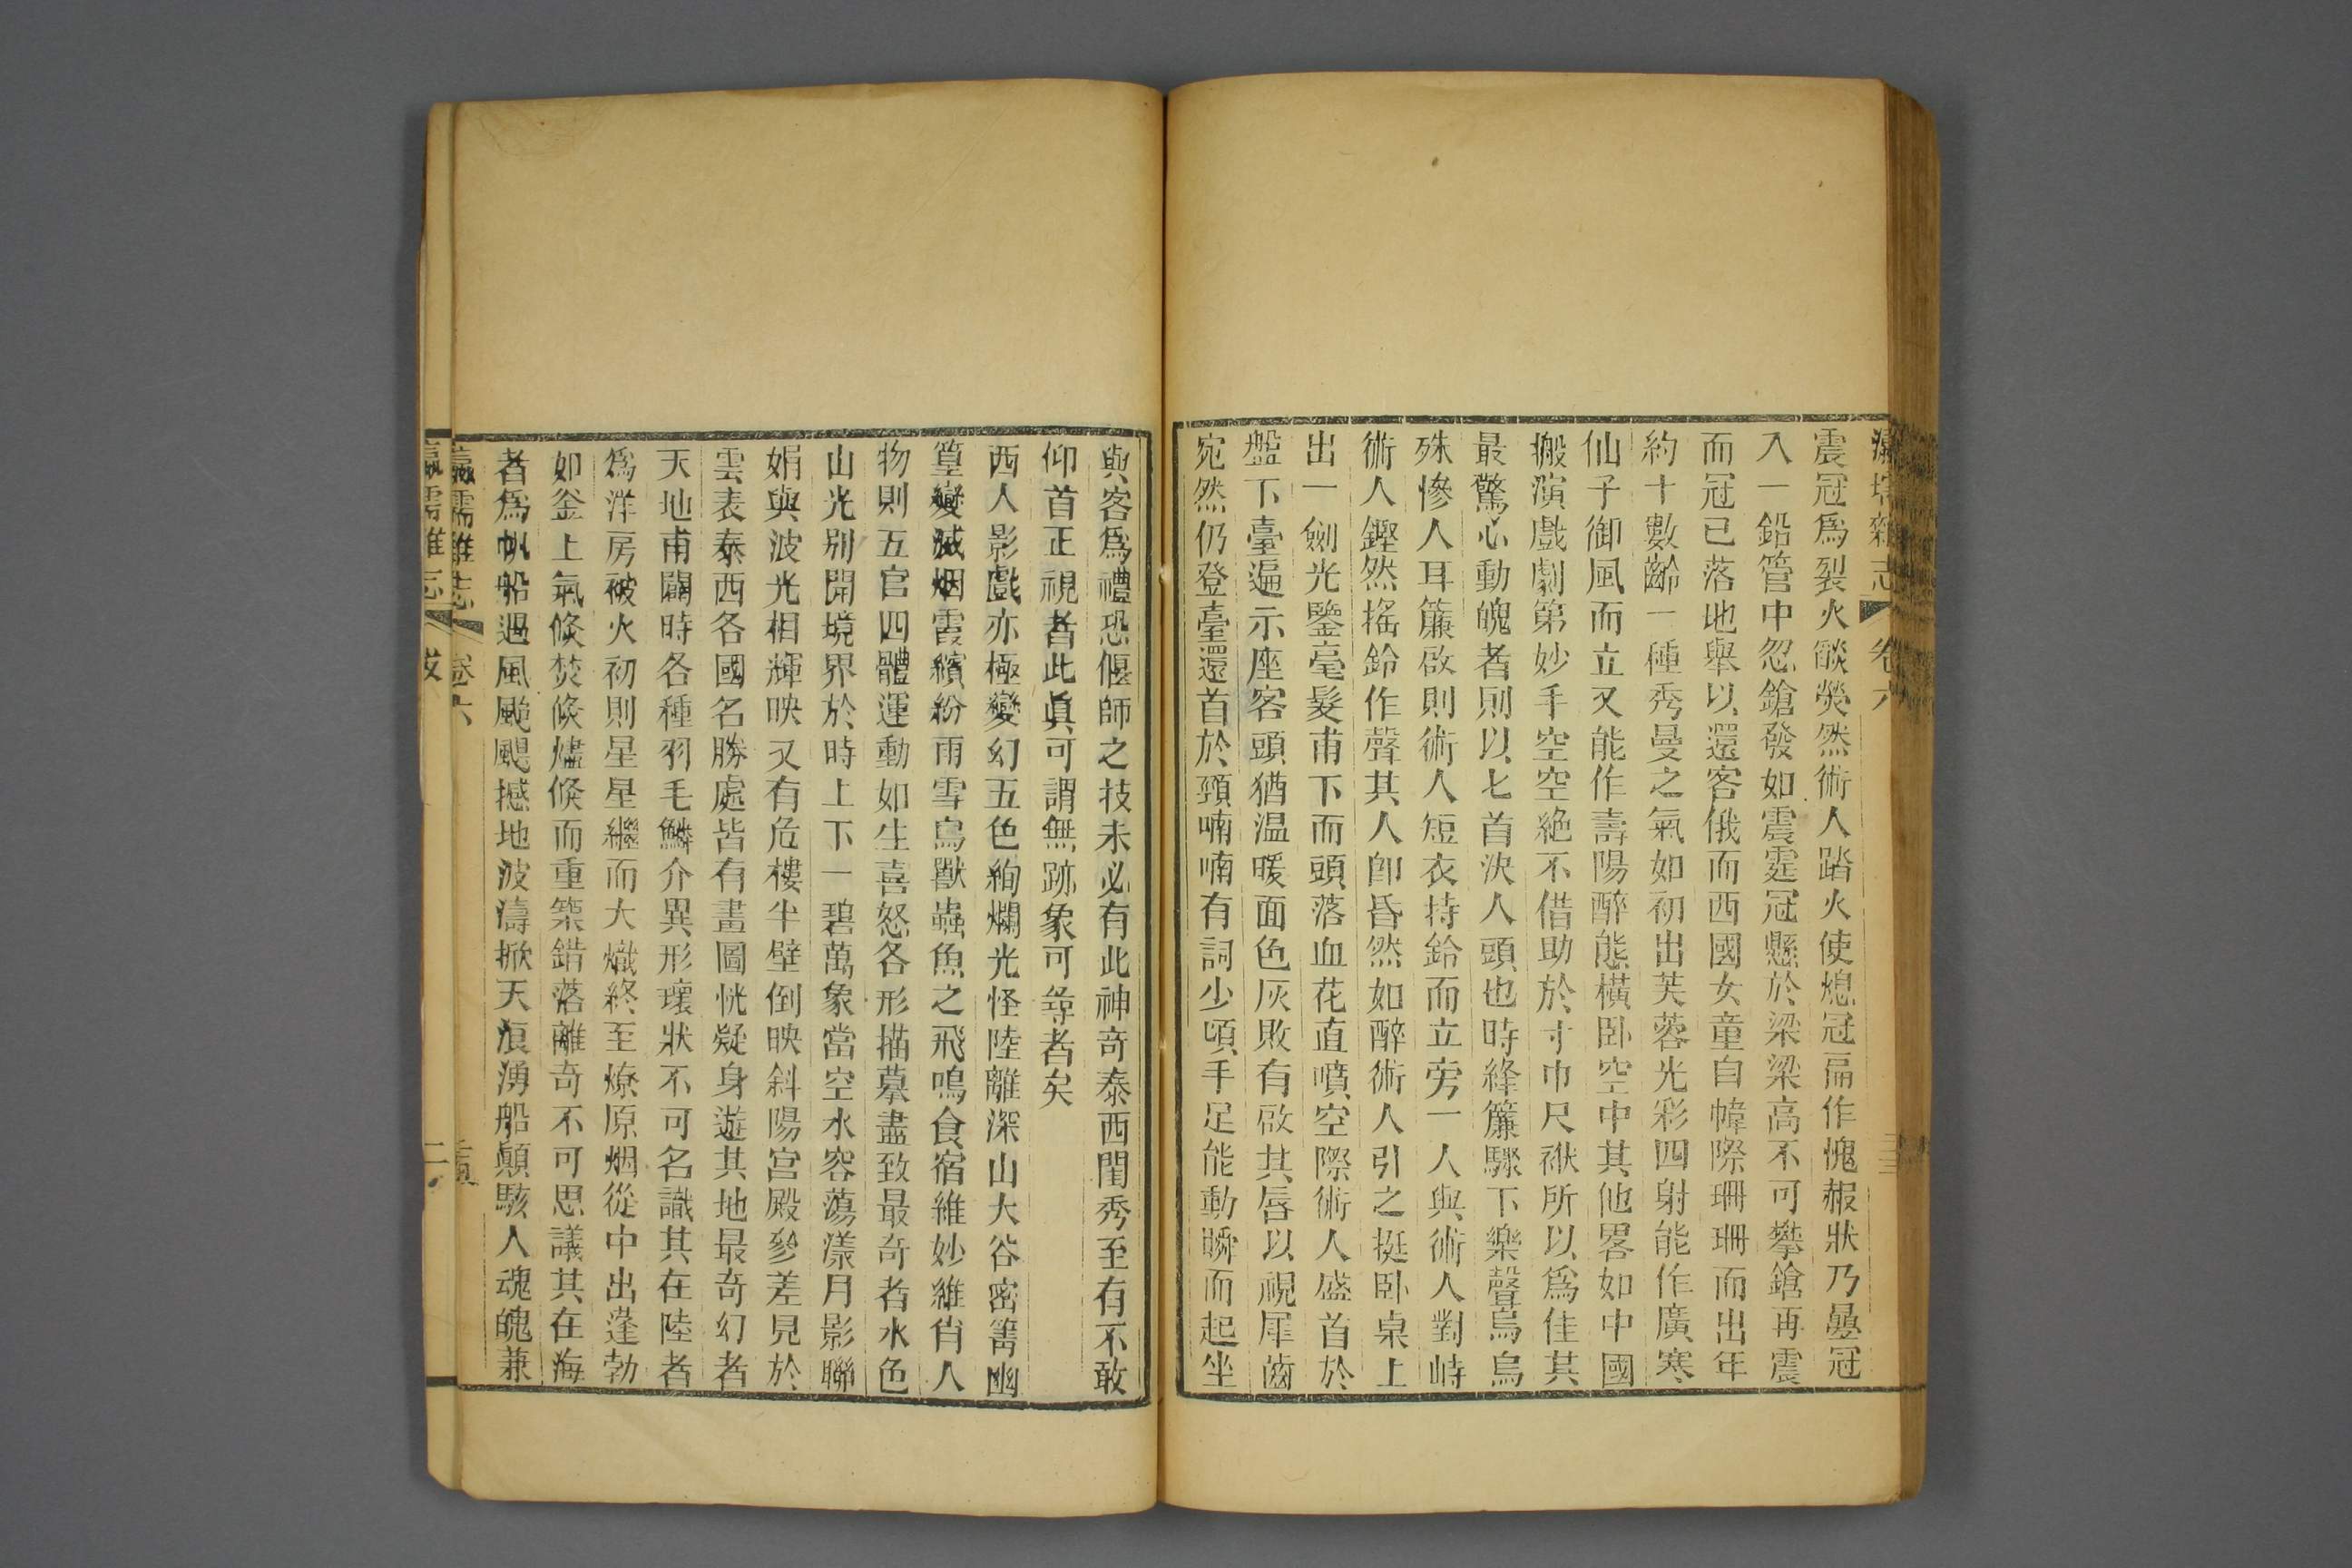 瀛壖雜志 卷六
震冠爲裂火燄熒然術人踏火使熄冠扁作愧赧狀乃曡冠
入一鉛管中忽鎗發如震霆冠懸於梁梁高不可攀鎗再震
而冠已落地舉以還客俄而西國女童自幃際珊珊而出年
約十數齡一種秀曼之氣如初出芙蓉光彩四射能作廣寒
仙子御風而立又能作壽陽醉態橫卧空中其他畧如中國
搬演戲劇第妙手空空絶不借助於寸巾尺袱所以爲佳其
最驚心動魄者則以匕首決人頭也時絳簾驟下樂聲烏烏
殊慘人耳簾啟則術人短衣持鈴而立旁一人與術人對峙
術人鏗然搖鈴作聲其人卽昏然如醉術人引之挺卧桌上
出一劍光鑒毫髮甫下而頭落血花直噴空際術人盛首於
盤下臺遍示座客頭猶温暖面色灰敗有啟其唇以視犀齒
宛然仍登臺還首於頸喃喃有詞少頃手足能動瞬而起坐
與客爲禮恐偃師之技未必有此神竒泰西閨秀至有不敢
仰首正視者此眞可謂無跡象可尋者矣
西人影戲亦極變幻五色絢爛光怪陸離深山大谷密箐幽
篁變滅烟霞繽紛雨雪鳥獸蟲魚之飛鳴食宿維妙維肖人
物則五官四體運動如生喜怒各形描摹盡致最竒者水色
山光别開境界於時上下一碧萬象當空水容蕩漾月影聯
娟與波光相輝映又有危樓半壁倒映斜陽宫殿參差見於
雲表泰西各國名勝處皆有畫圖恍疑身遊其地最竒幻者
天地甫闢時各種羽毛鱗介異形瓌狀不可名識其在陸者
爲洋房被火初則星星繼而大熾終至燎原烟從中出蓬勃
如釜上氣倐焚倐燼倐而重築錯落離竒不可思議其在海
者爲帆船遇風颷颶撼地波濤掀天浪湧船顛駭人魂魄兼
瀛壖雜志 卷六
瀛壖雜志 跋